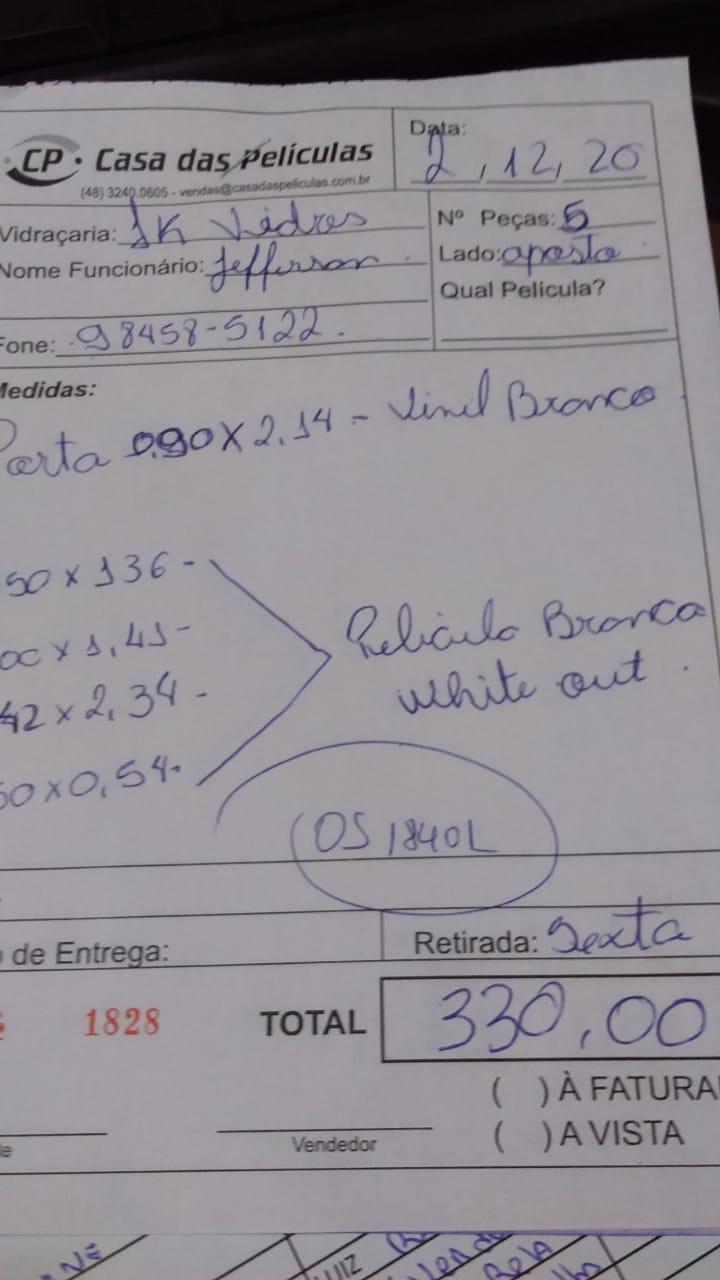 CP · Casa das Películas
(48) 3240.0605 - vendas@casadaspeliculas.com.br
Data: 2, 12, 20
Vidraçaria: JK Vidros
Nome Funcionário: Jefferson
Fone: 98458-5122.
Nº Peças: 5
Lado: oposto
Qual Película?
Medidas:
Porta 0.90 x 2.14 - Vinil Branco
50 x 136 -
00 x 1,41 -
42 x 2,34 -
50 x 0,54 -
Pelicula Branca
White out.
OS 1840L
de Entrega:
Retirada: Sexta
1828
TOTAL 330,00
( ) À FATURA
( ) A VISTA
Vendedor